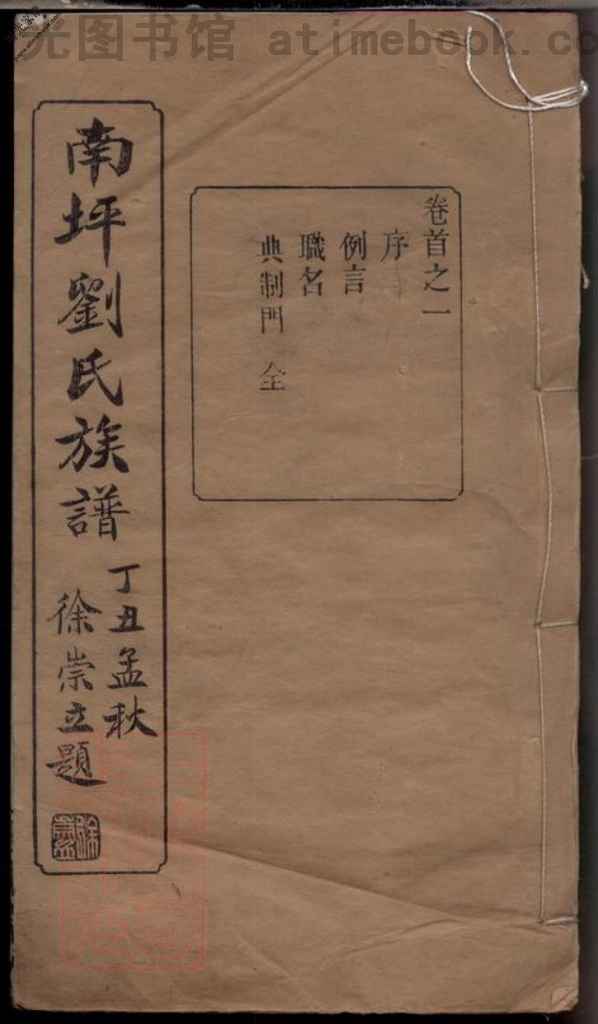 光图书馆 atimebook.co
卷首之一
序
例言
職名
典制門 全
南坪劉氏族譜
丁丑孟秋
徐崇立題